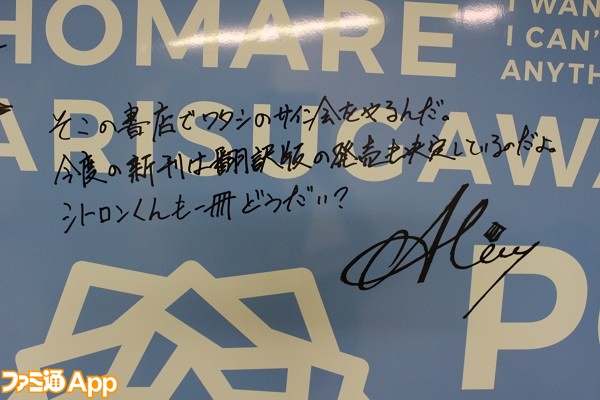 HOMARE
I WAN
I CAN'T
ANYTH
ARISUGAWA
そこの書店でワタシのサイン会をやるんだ。
今度の新刊は翻訳版の発売も決定しているのだよ。
シトロンくんも一冊どうだい?
PO
ファミ通App